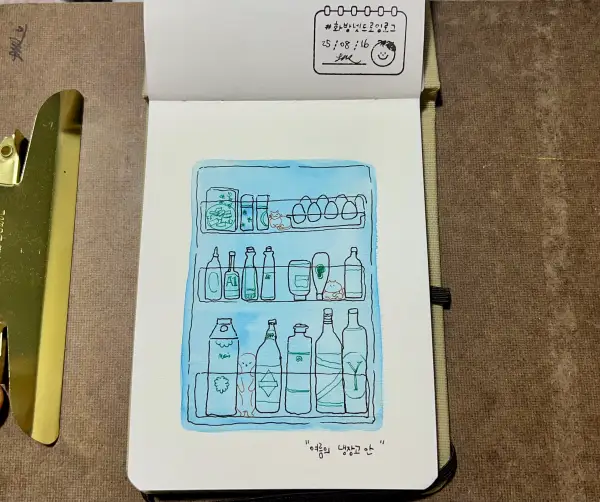 #화방넷드로잉로그
25 : 08 : 16
A1
Y
"여름의 냉장고 안"